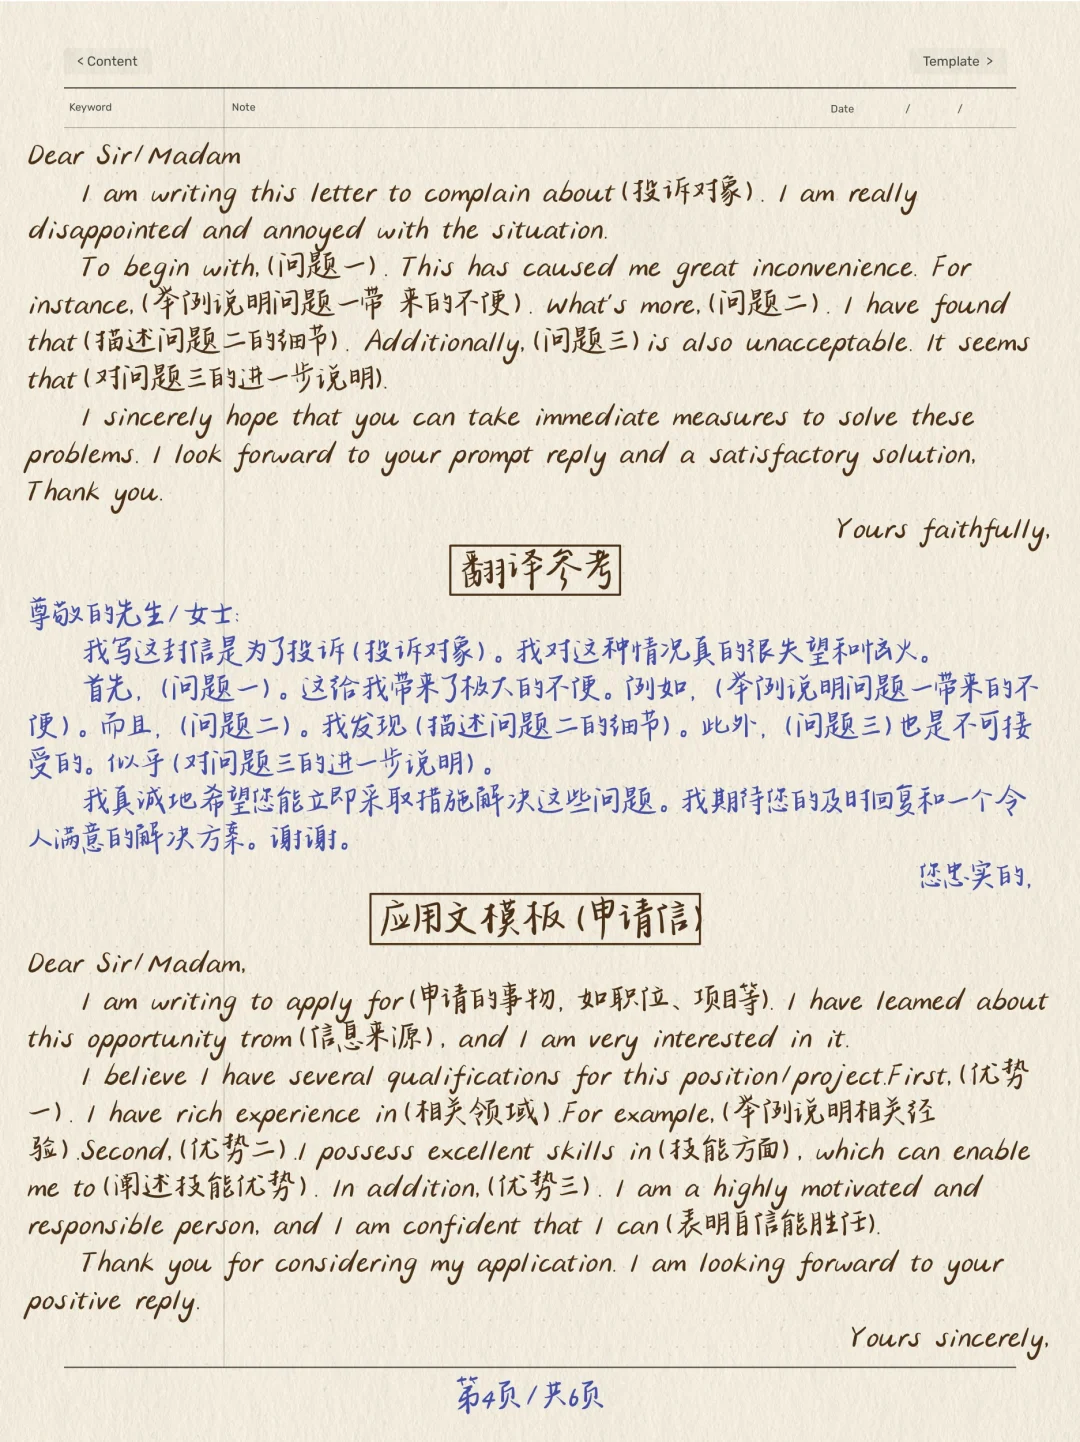 < Content
Template >
Keyword
Note
Date / /
Dear Sir/Madam
I am writing this letter to complain about(投诉对象). I am really
disappointed and annoyed with the situation.
To begin with,(问题一). This has caused me great inconvenience. For
instance,(举例说明问题一带 来的不便). What's more,(问题二). I have found
that(描述问题二的细节). Additionally,(问题三)is also unacceptable. It seems
that(对问题三的进一步说明).
I sincerely hope that you can take immediate measures to solve these
problems. I look forward to your prompt reply and a satisfactory solution,
Thank you.
Yours faithfully,
翻译参考
尊敬的先生/女士:
我写这封信是为了投诉(投诉对象)。我对这种情况真的很失望和恼火。
首先，(问题一)。这给我带来了极大的不便。例如，(举例说明问题一带来的不
便)。而且，(问题二)。我发现(描述问题二的细节)。此外，(问题三)也是不可接
受的。似乎(对问题三的进一步说明)。
我真诚地希望您能立即采取措施解决这些问题。我期待您的及时回复和一个令
人满意的解决方案。谢谢。
您忠实的,
应用文模板(申请信)
Dear Sir/Madam,
I am writing to apply for(申请的事物，如职位、项目等). I have leamed about
this opportunity trom(信息来源), and I am very interested in it.
I believe I have several qualifications for this position/project.First,(优势
一). I have rich experience in(相关领域).For example,(举例说明相关经
验).Second,(优势二).I possess excellent skills in(技能方面), which can enable
me to(阐述技能优势). In addition,(优势三). I am a highly motivated and
responsible person, and I am confident that I can(表明自信能胜任).
Thank you for considering my application. I am looking forward to your
positive reply.
Yours sincerely,
第4页/共6页